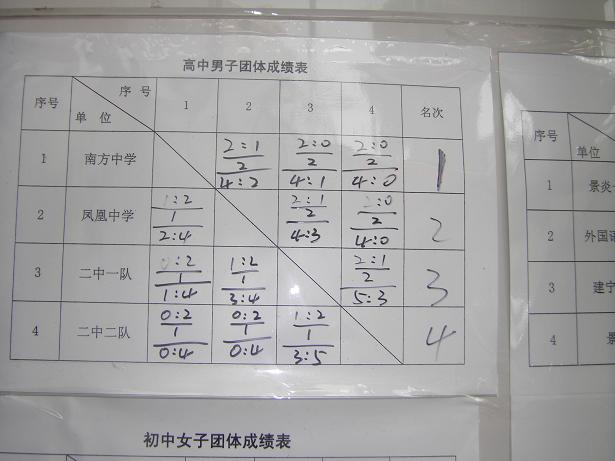 高中男子团体成绩表
序号 序 号 单 位 1 2 3 4 名次
1 南方中学 2:1 2:0 2:0 1
2 2 2
4:2 4:1 4:0
2 凤凰中学 1:2 2:1 2:0 2
1 2 2
2:4 4:3 4:0
3 二中一队 0:2 1:2 2:1 3
1 1 2
1:4 3:4 5:3
4 二中二队 0:2 0:2 1:2 4
1 1 1
0:4 0:4 3:5
初中女子团体成绩表
序号
单位
1 景炎
2 外国语
3 建宁
4 景